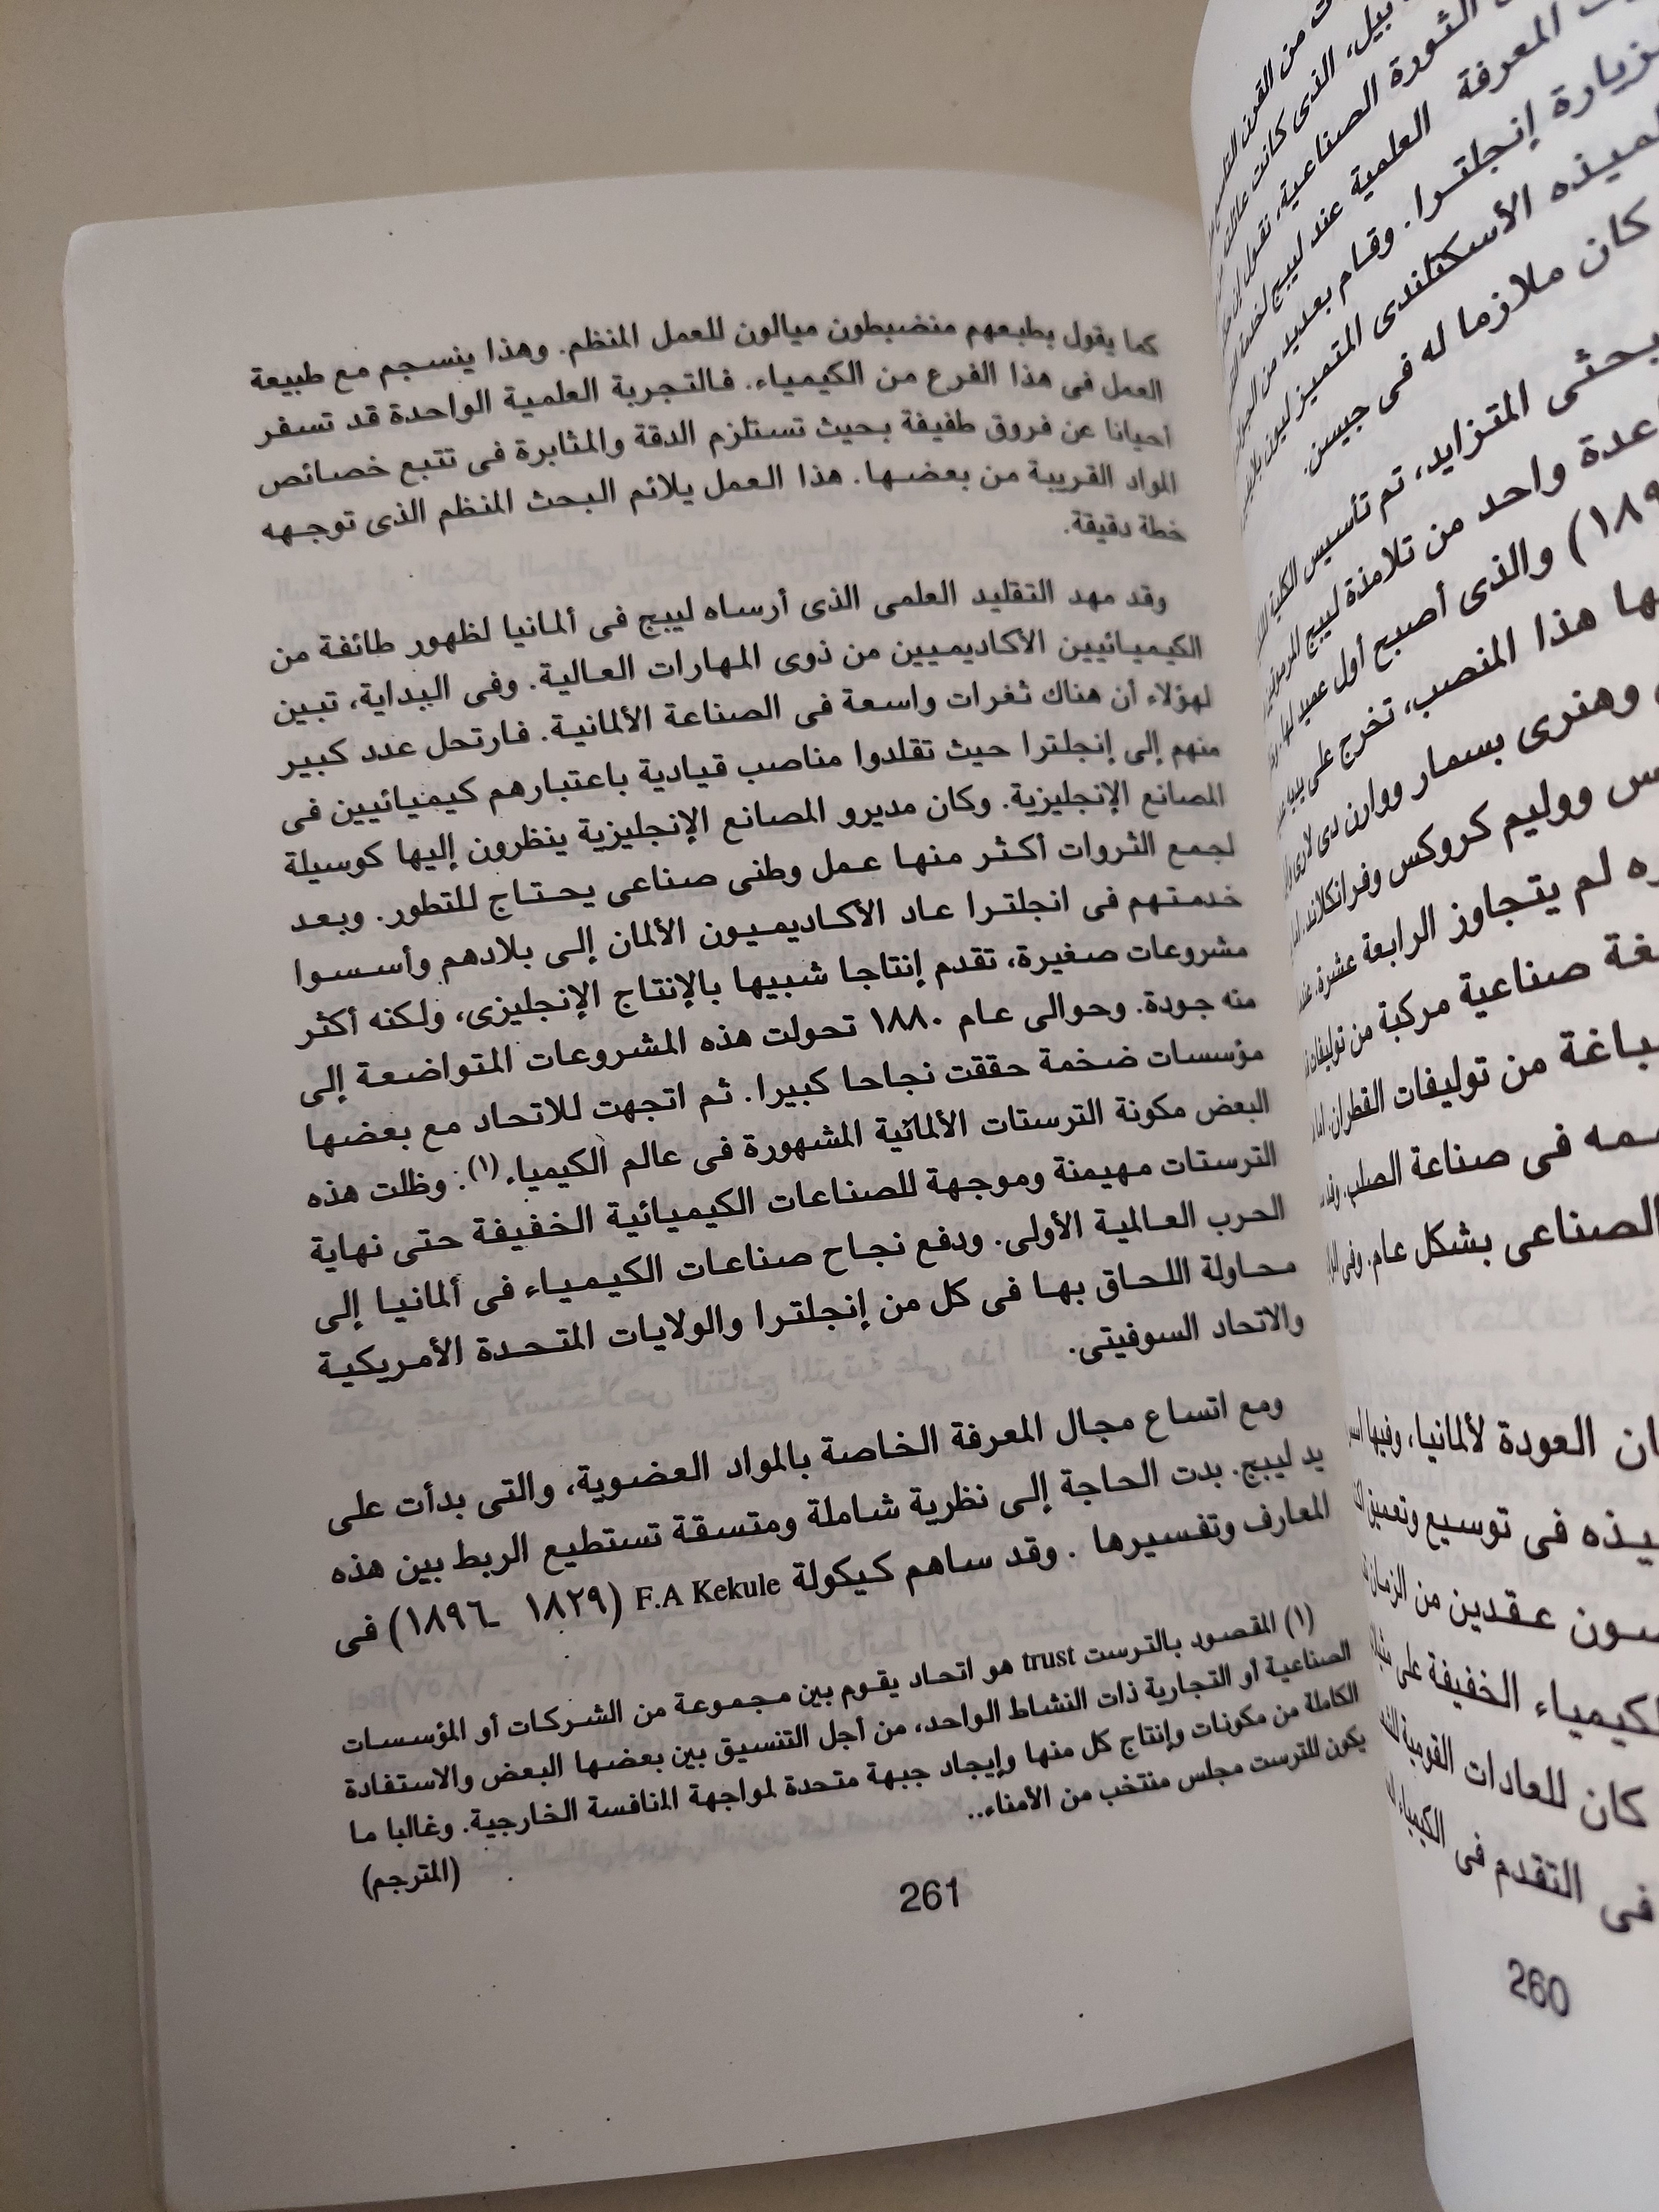 كما يقول بطبعهم منضبطون ميالون للعمل المنظم. وهذا ينسجم مع طبيعة
العمل فى هذا الفرع من الكيمياء. فالتجربة العلمية الواحدة قد تسفر
أحيانا عن فروق طفيفة بحيث تستلزم الدقة والمثابرة فى تتبع خصائص
المواد القريبة من بعضها. هذا العمل يلائم البحث المنظم الذى توجهه
خطة دقيقة.
وقد مهد التقليد العلمى الذى أرساه ليبج فى ألمانيا لظهور طائفة من
الكيميائيين الأكاديميين من ذوى المهارات العالية. وفى البداية، تبين
لهؤلاء أن هناك ثغرات واسعة فى الصناعة الألمانية. فارتحل عدد كبير
منهم إلى إنجلترا حيث تقلدوا مناصب قيادية باعتبارهم كيميائيين فى
المصانع الإنجليزية. وكان مديرو المصانع الإنجليزية ينظرون إليها كوسيلة
لجمع الثروات أكثر منها عمل وطنى صناعى يحتاج للتطور. وبعد
خدمتهم فى انجلترا عاد الأكاديميون الألمان إلى بلادهم وأسسوا
مشروعات صغيرة، تقدم إنتاجا شبيها بالإنتاج الإنجليزى، ولكنه أكثر
منه جودة. وحوالى عام ١٨٨٠ تحولت هذه المشروعات المتواضعة إلى
مؤسسات ضخمة حققت نجاحا كبيرا. ثم اتجهت للاتحاد مع بعضها
البعض مكونة الترستات الألمانية المشهورة فى عالم الكيمياء (١). وظلت هذه
الترستات مهيمنة وموجهة للصناعات الكيميائية الخفيفة حتى نهاية
الحرب العالمية الأولى. ودفع نجاح صناعات الكيمياء فى ألمانيا إلى
محاولة اللحاق بها فى كل من إنجلترا والولايات المتحدة الأمريكية
والاتحاد السوفيتى.
ومع اتساع مجال المعرفة الخاصة بالمواد العضوية، والتى بدأت على
يد ليبج. بدت الحاجة إلى نظرية شاملة ومتسقة تستطيع الربط بين هذه
المعارف وتفسيرها . وقد ساهم كيكولة F.A Kekule (١٨٢٩ - ١٨٩٦) فى
(١) المقصود بالترست trust هو اتحاد يقوم بين مجموعة من الشركات أو المؤسسات
الصناعية أو التجارية ذات النشاط الواحد، من أجل التنسيق بين بعضها البعض والاستفادة
الكاملة من مكونات وإنتاج كل منها وإيجاد جبهة متحدة لمواجهة المنافسة الخارجية. وغالبا ما
يكون للترست مجلس منتخب من الأمناء..
(المترجم)
261
من القرن
بيل، الذى كانت
الثورة الصناعية،
المعرفة العلمية عند ليبج
لزيارة إنجلترا. وقام بعديد من
الأسكتلندى المتميز ليون
كان ملازما له فى جيسن.
المتزايد، تم تأسيس الكلية
واحد من تلامذة ليبج
والذى أصبح أول عميد لها.
هذا المنصب، تخرج على يديه
وهنرى بسمار ووارن دى
ووليم كروكس وفرانكلاند،
لم يتجاوز الرابعة عشرة،
صناعية مركبة من
من توليفات القطران،
فى صناعة الصلب.
الصناعى بشكل عام. وفى
العودة لألمانيا، وفيها
فى توسيع وتعميق
عقدين من الزمان
الخفيفة على
كان للعادات القومية
فى التقدم فى الكيمياء
260